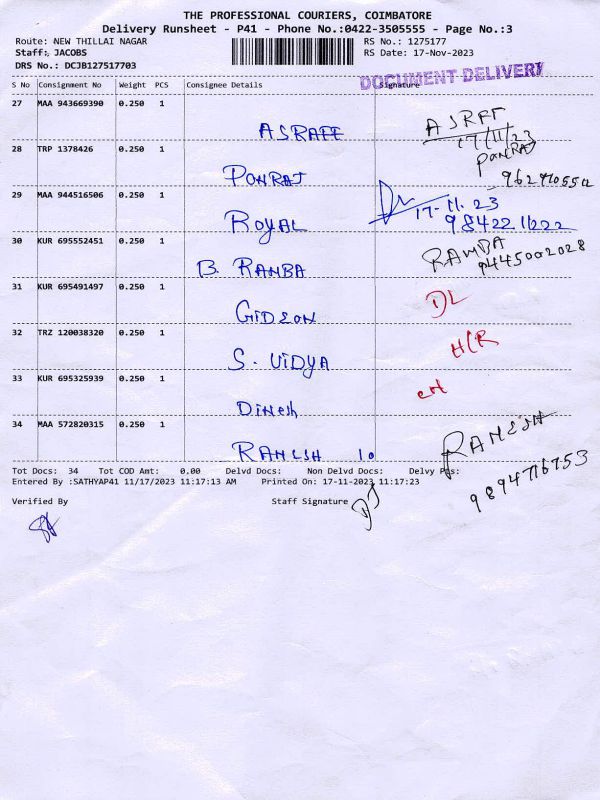 THE PROFESSIONAL COURIERS, COIMBATORE
Delivery Runsheet - P41 - Phone No.:0422-3505555 - Page No.:3
Route: NEW THILLAI NAGAR RS No.: 1275177
Staff: JACOBS RS Date: 17-Nov-2023
DRS No.: DCJB127517703
DOCUMENT DELIVERY
S No Consignment No Weight PCS Consignee Details Signature
27 MAA 943669390 0.250 1
ASRAFF ASRFF
17/11/23
28 TRP 1378426 0.250 1
PONRAJ PONRAJ
9629705512
29 MAA 944516506 0.250 1
ROYAL 17-11.23
9842211222
30 KUR 695552451 0.250 1
B. RAMBA RAMBA
9445002028
31 KUR 695491497 0.250 1
GIDEON DL
32 TRZ 120038320 0.250 1
S. VIDYA HCR
33 KUR 695325939 0.250 1
Dinesh
34 MAA 572820315 0.250 1
RAMESH 10 RAMESH
9894716753
Tot Docs: 34 Tot COD Amt: 0.00 Delvd Docs: Non Delvd Docs: Delvy Pcs:
Entered By :SATHYAP41 11/17/2023 11:17:13 AM Printed On: 17-11-2023 11:17:23
Verified By Staff Signature